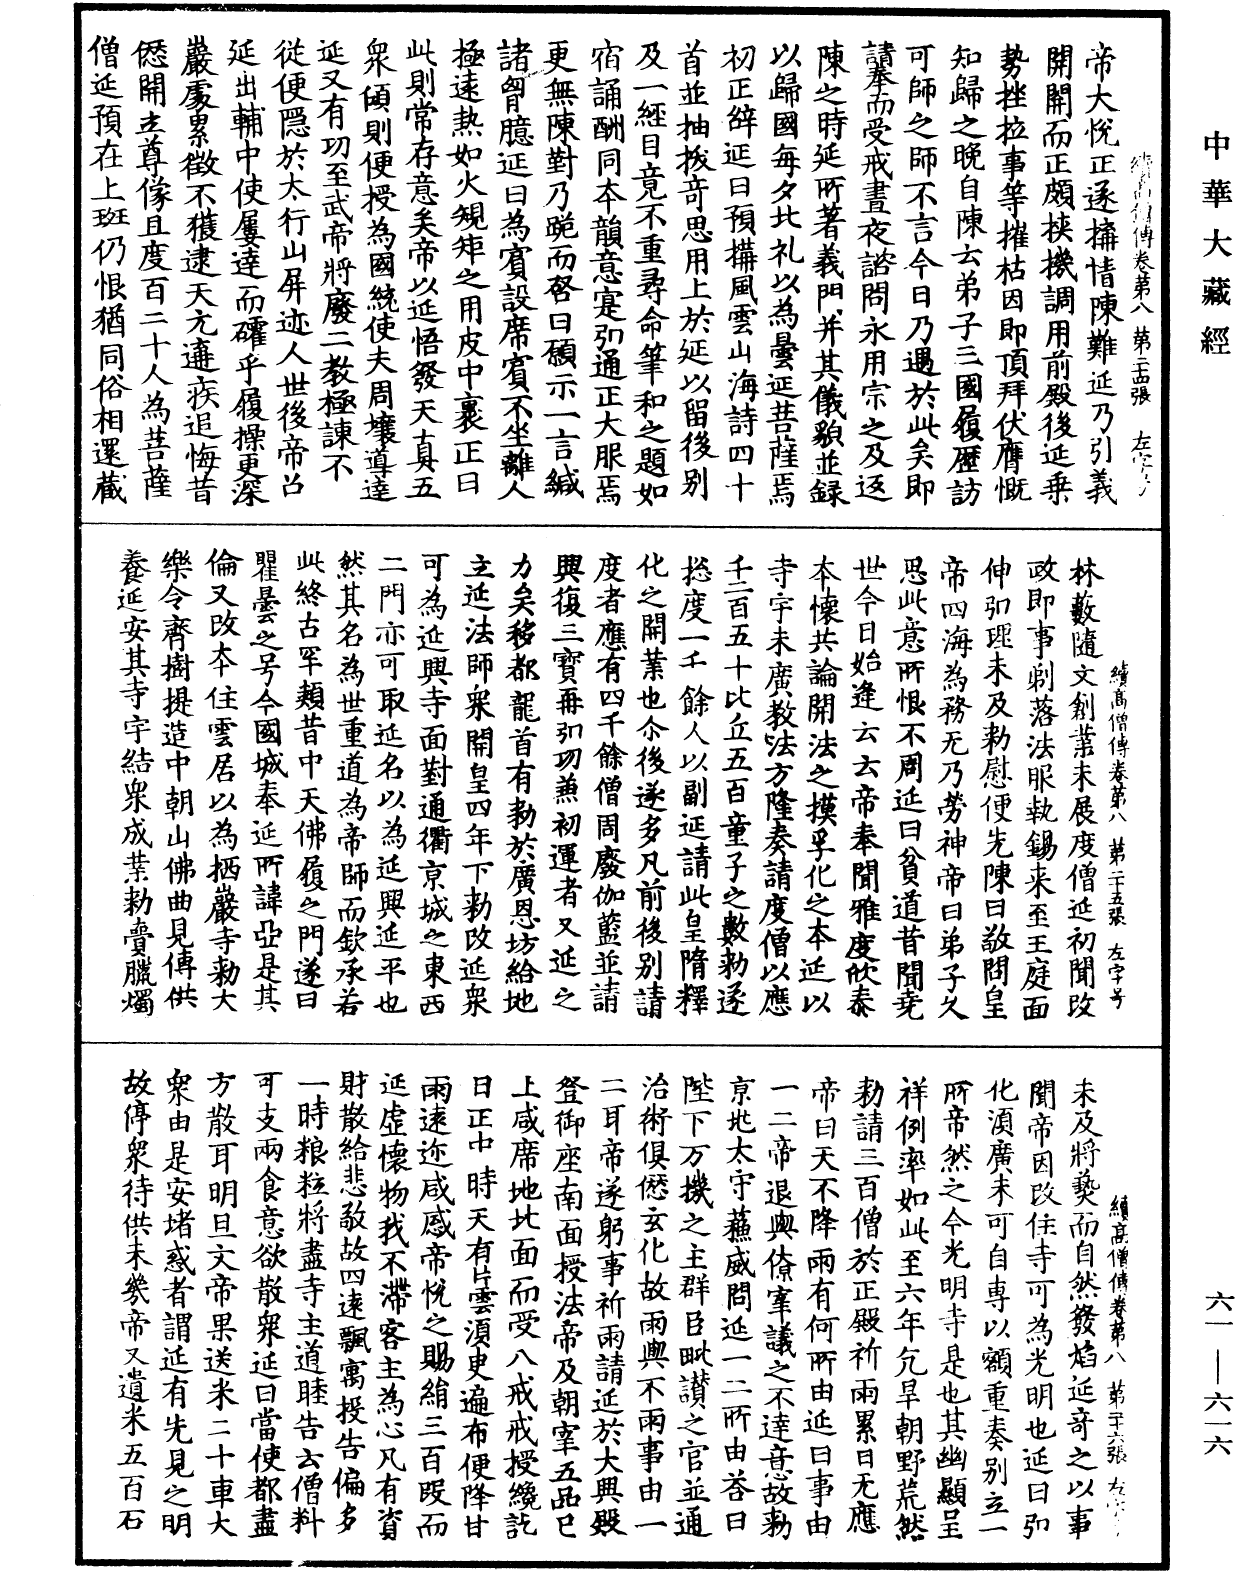 中華大藏經
續高僧傳卷第八 第二十四張 左字号
帝大悅正遂擄情陳難延乃引義
開關而正頗挾機調用前殿後延乗
勢挫拉事等摧枯因即頂拜伏膺慨
知歸之晚自陳云弟子三國履歷訪
可師之師不言今日乃遇於此矣即
請奉而受戒晝夜諮問永用宗之及返
陳之時延所著義門并其儀貌並録
以歸國每夕北礼以為曇延菩薩焉
初正辝延日預搆風雲山海詩四十
首並抽拔奇思用上於延以留後別
及一經目竟不重尋命筆和之題如
宿誦酬同本韻意寔弘通正大服焉
更無陳對乃跪而啓曰願示一言緘
諸胷臆延曰為賓設席賓不坐離人
極遠熱如火規矩之用皮中裹正曰
此則常存意矣帝以延悟發天真五
衆傾則便授為國統使夫周壤導達
延又有功至武帝將廢二教極諫不
從便隱於太行山屏迹人世後帝召
延出輔中使屢達而確乎履操更深
巖處累徵不獲逮天亢遘疾追悔昔
僁開立尊像且度百二十人為菩薩
僧延預在上班仍恨猶同俗相還蔵
續高僧傳卷第八 第二十五張 左字号
林藪隨文創業未展度僧延初聞改
政即事剃落法服執錫来至王庭面
伸弘理未及勑慰便先陳曰敬問皇
帝四海為務无乃勞神帝曰弟子久
思此意所恨不周延曰貧道昔聞堯
世今日始逢云云帝奉聞雅度欣泰
本懷共論開法之摸孚化之本延以
寺宇未廣教法方隆奏請度僧以應
千二百五十比丘五百童子之數勑遂
揔度一千餘人以副延請此皇隋釋
化之開業也尒後遂多凡前後別請
度者應有四千餘僧周廢伽藍並請
興復三寳再弘功兼初運者又延之
力矣移都龍首有勑於廣恩坊給地
立延法師衆開皇四年下勑改延衆
可為延興寺面對通衢京城之東西
二門亦可取延名以為延興延平也
然其名為世重道為帝師而欽承若
此終古罕類昔中天佛履之門遂曰
瞿曇之号今國城奉延所諱亞是其
倫又改本住雲居以為栖巖寺勑大
樂令齊樹提造中朝山佛曲見傳供
養延安其寺宇結衆成業勑賷臘燭
續高僧傳卷第八 第二十六張 左字号
未及將爇而自然發焰延奇之以事
聞帝因改住寺可為光明也延曰弘
化須廣未可自專以額重奏別立一
所帝然之今光明寺是也其幽顯呈
祥例率如此至六年亢旱朝野荒然
勑請三百僧於正殿祈雨累日无應
帝曰天不降雨有何所由延曰事由
一二帝退與僚宰議之不達意故勑
京兆太守蘇威問延一二所由荅曰
陛下万機之主群臣毗讃之官並通
治術俱僁玄化故雨與不雨事由一
二耳帝遂躬事祈雨請延於大興殿
登御座南面授法帝及朝宰五品已
上咸席地北面而受八戒戒授纔訖
日正中時天有片雲須臾遍布便降甘
雨遠迩咸感帝悅之賜絹三百段而
延虛懷物我不滯客主為心凡有資
財散給悲敬故四遠飄寓投告偏多
一時粮粒將盡寺主道睦告云僧料
可支兩食意欲散衆延曰當使都盡
方散耳明旦文帝果送米二十車大
衆由是安堵惑者謂延有先見之明
故停衆待供未幾帝又遺米五百石
六一—六一六